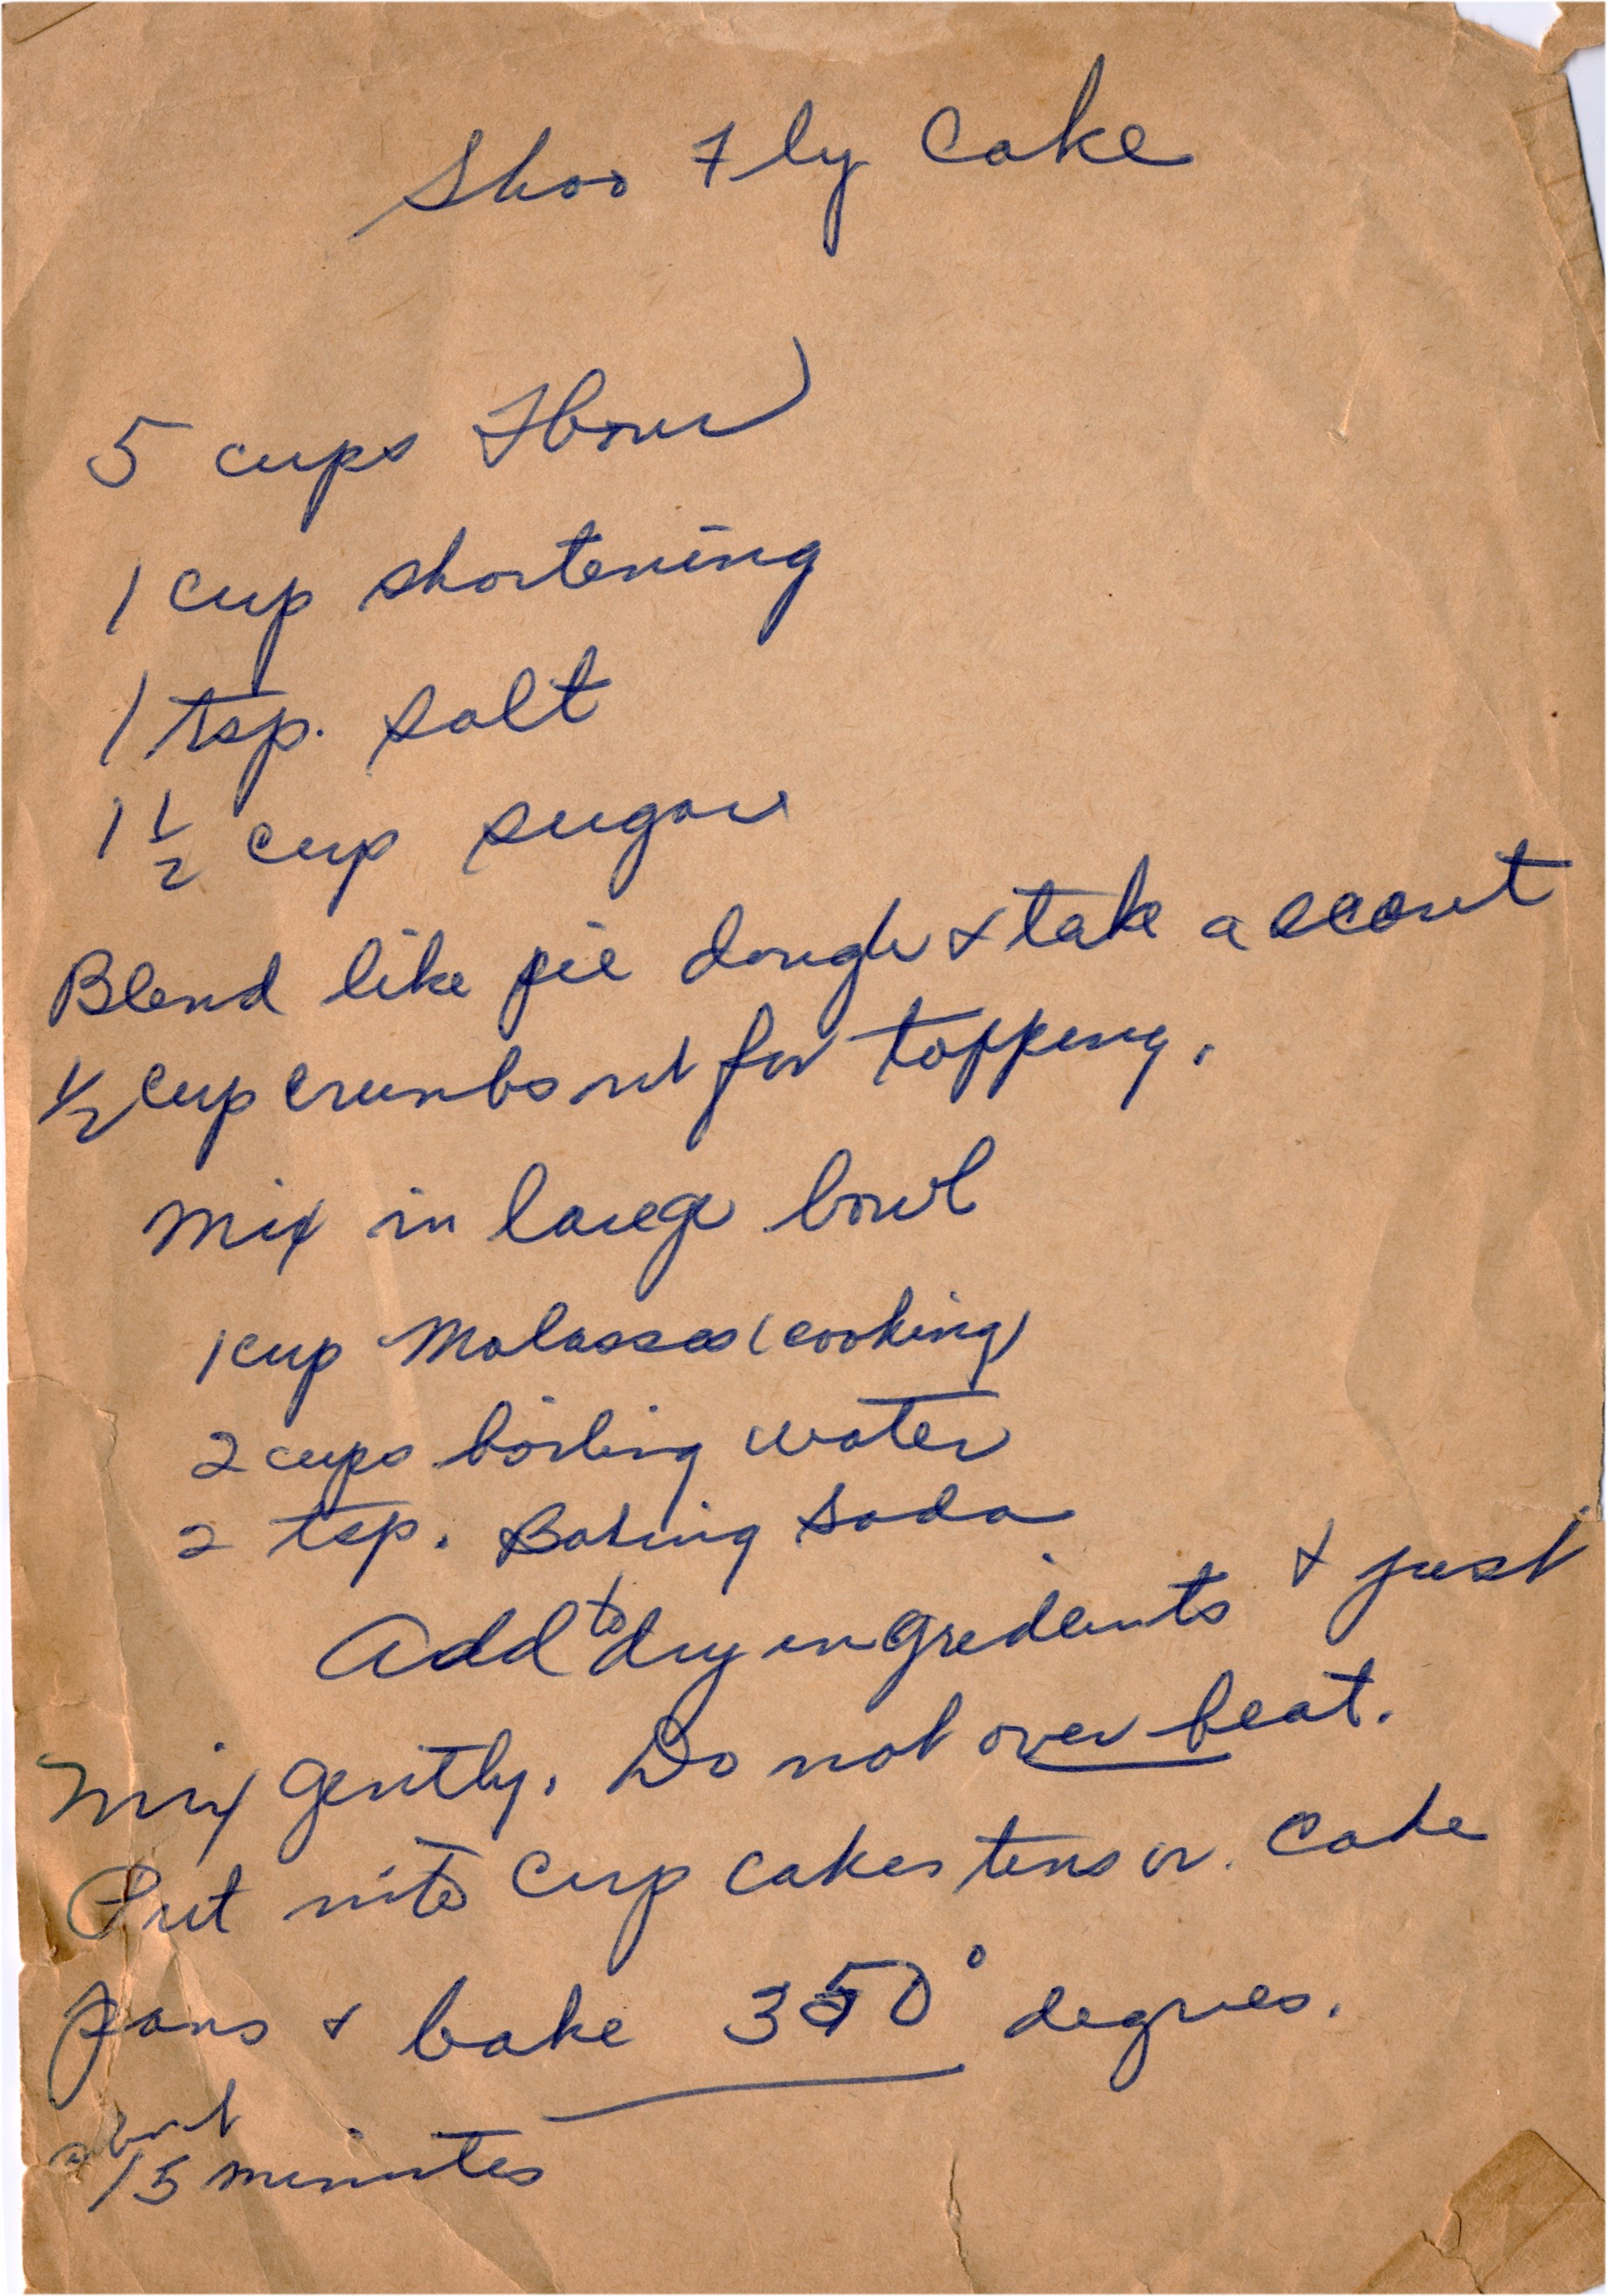 Shoo Fly Cake
5 cups Flour
1 cup shortening
1 tsp. salt
1 1/2 cup sugar
Blend like pie dough & take a scant
1/2 cup crumbs out for topping.
Mix in large bowl
1 cup Molasses (cooking)
2 cups boiling water
2 tsp. Baking Soda
Add to dry ingredients & just
Mix gently. Do not over beat.
Put into cup cakes tins or cake
pans & bake 350° degrees.
about
15 minutes